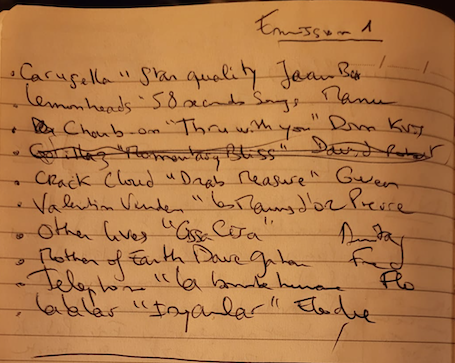 Emission 1
. Carusella " Star quality Jean Ba
. Lemonheads "58 seconds Song Manu
. Chomb on "Thru with you" Dom King
. Gorillaz "Momentary Bliss" David Robert
. Crack Cloud "Drab Measure" Gwen
. Valentin Vander "les Mains d'or Pierre
. Other lives "
. Mother of Earth Dave gahan Fred
. Telephone "la bombe humaine Flo
. lalalar "Isyanlar" Elodie